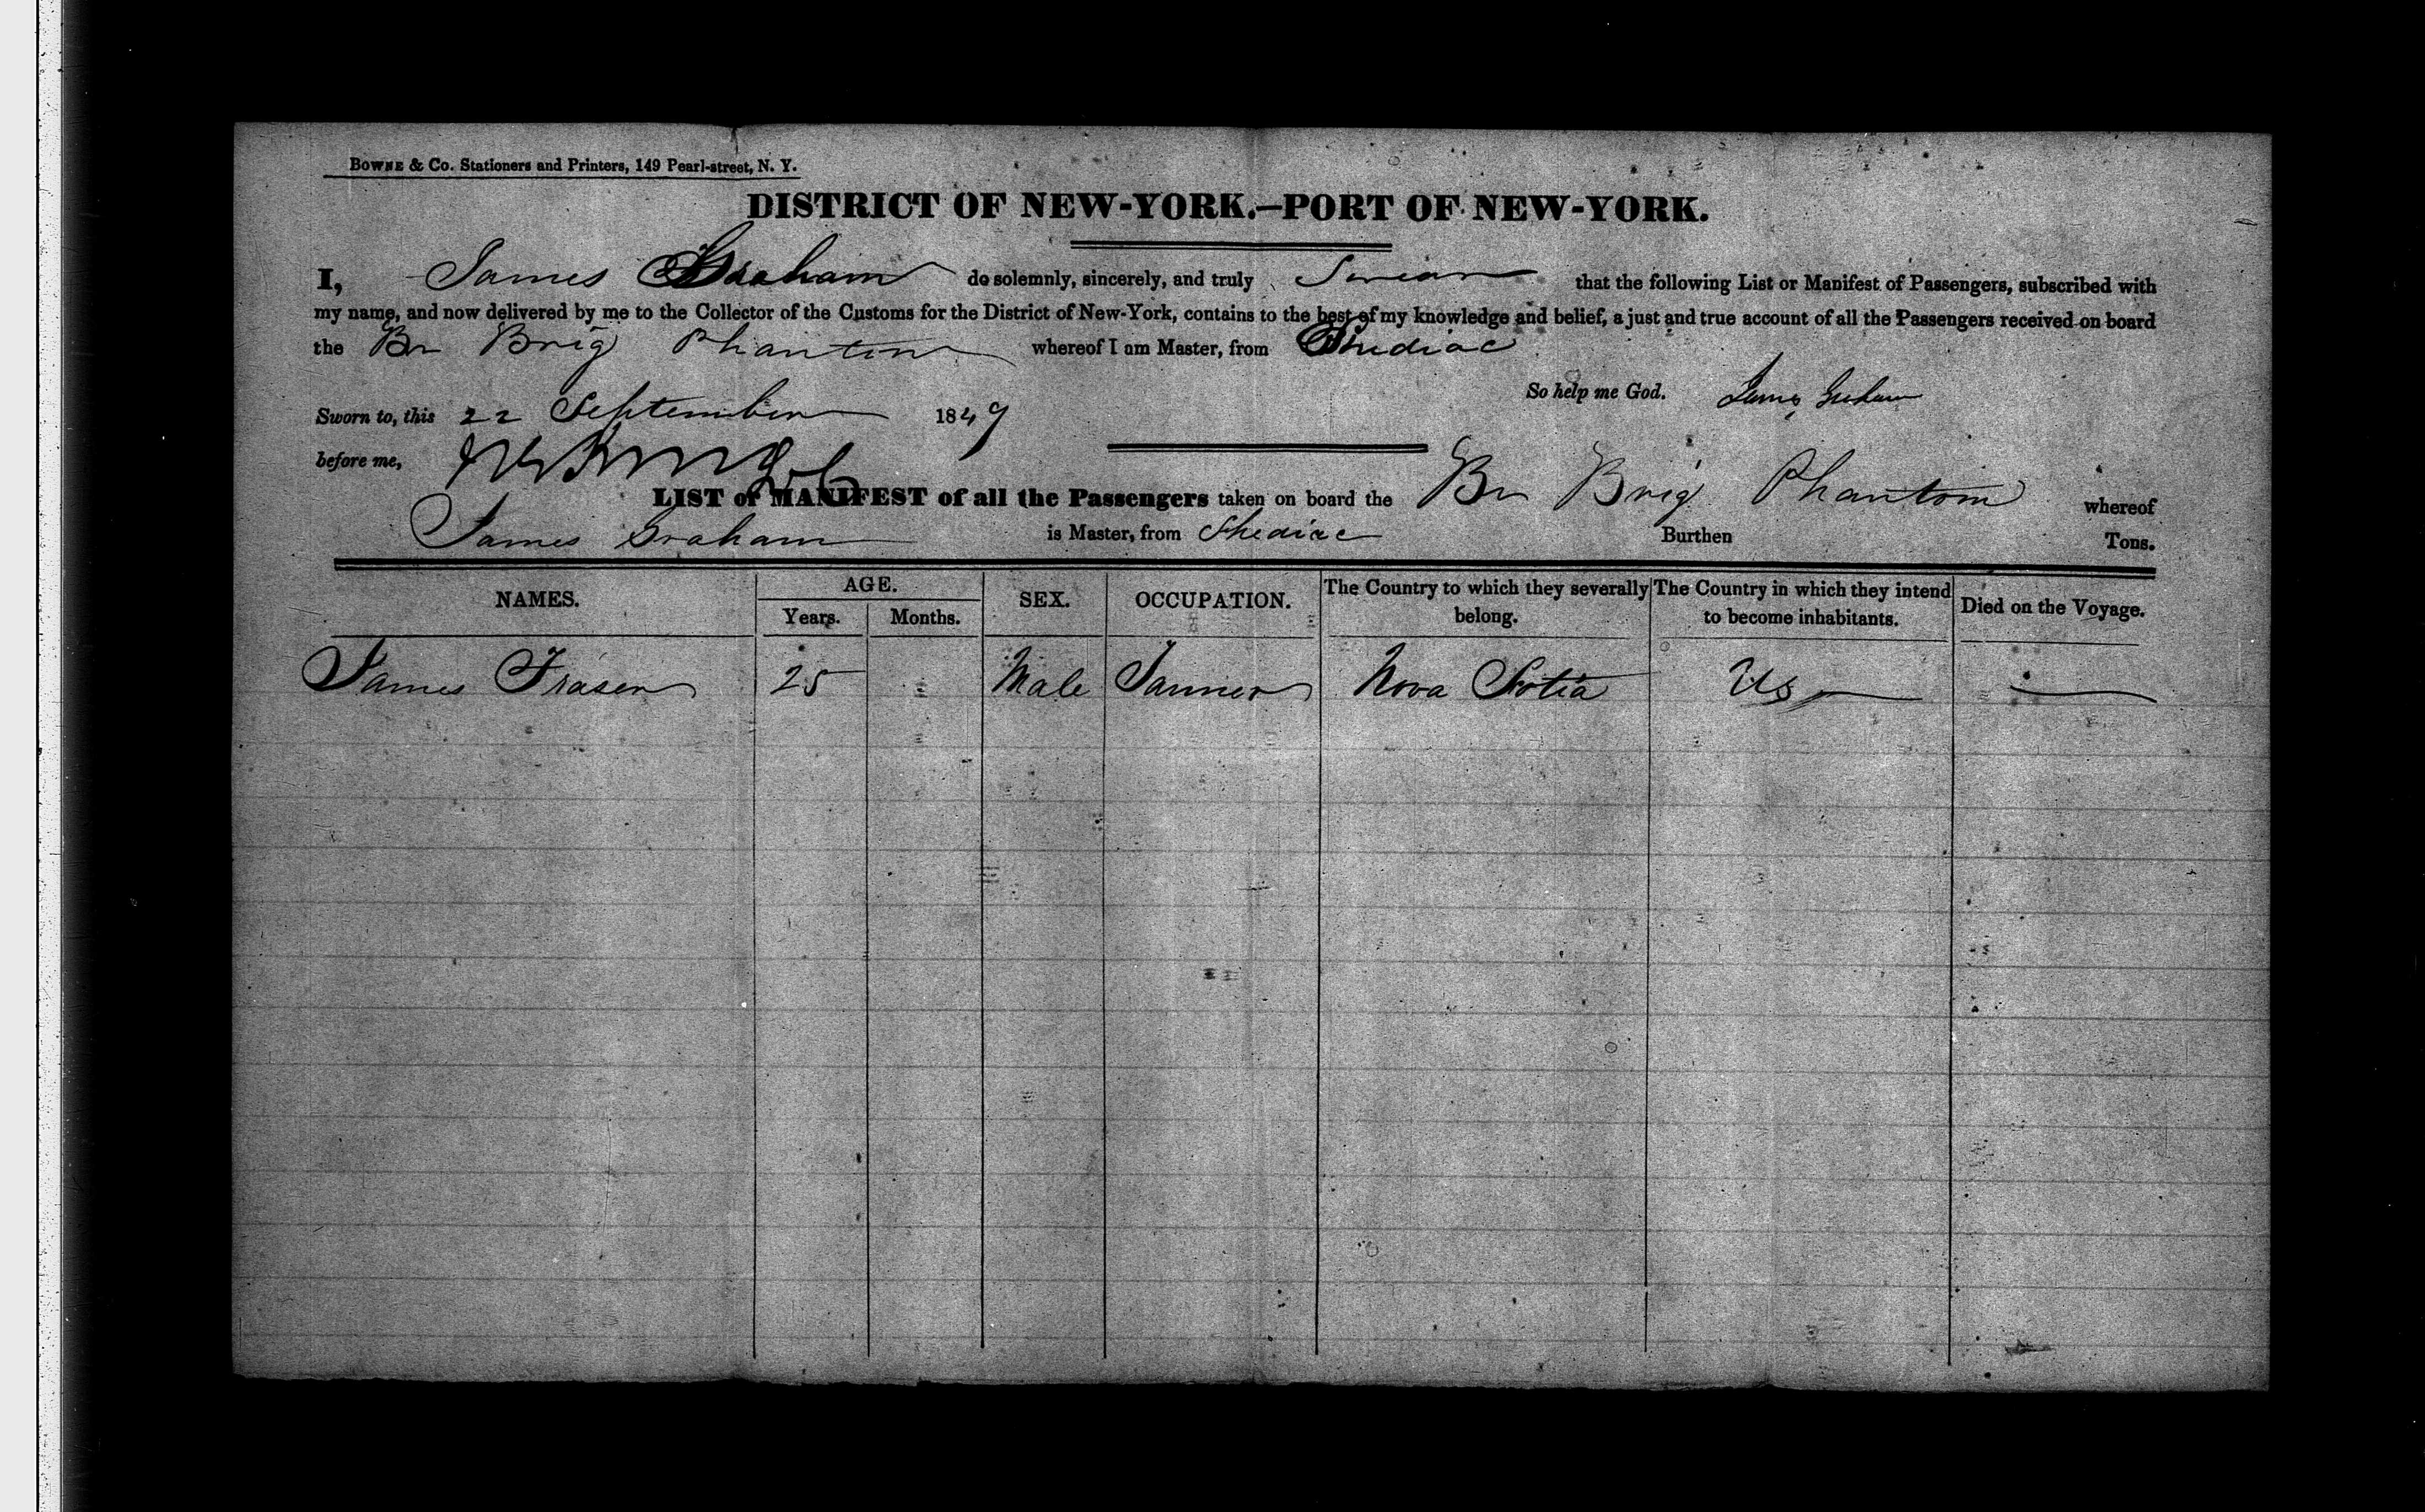 BOWNE & Co. Stationers and Printers, 149 Pearl-street, N. Y.
DISTRICT OF NEW-YORK.—PORT OF NEW-YORK.
I, James Graham do solemnly, sincerely, and truly Swear that the following List or Manifest of Passengers, subscribed with
my name, and now delivered by me to the Collector of the Customs for the District of New-York, contains to the best of my knowledge and belief, a just and true account of all the Passengers received on board
the Br Brig Phantom whereof I am Master, from Shediac
So help me God. James Graham
Sworn to, this 22 September 1849
before me,
LIST or MANIFEST of all the Passengers taken on board the Br Brig Phantom whereof
James Graham is Master, from Shediac Burthen Tons.
NAMES. AGE. SEX. OCCUPATION. The Country to which they severally belong. The Country in which they intend to become inhabitants. Died on the Voyage.
Years. Months.
James Fraser 25 Male Tanner Nova Scotia US